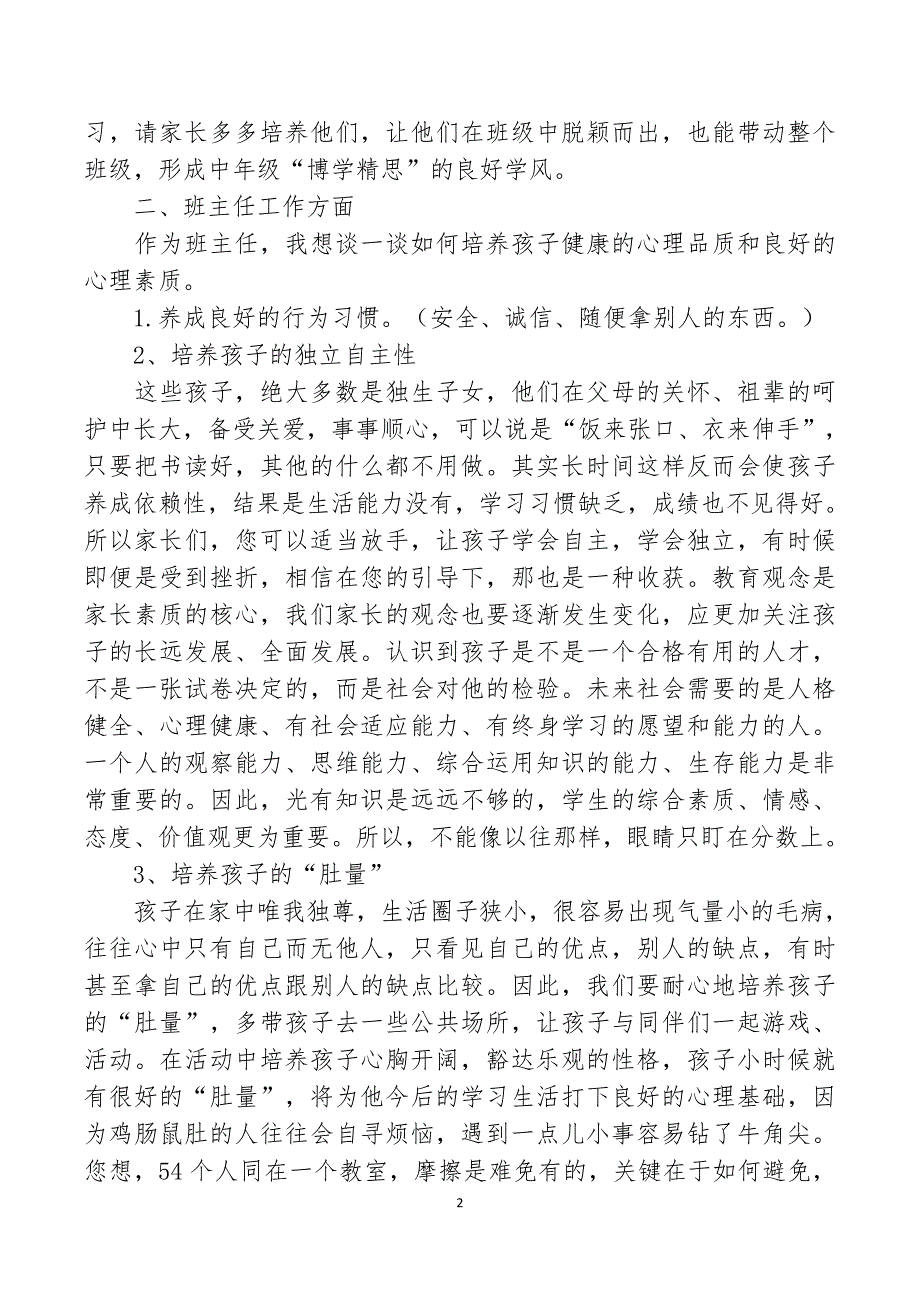 习，请家长多多培养他们，让他们在班级中脱颖而出，也能带动整个
班级，形成中年级“博学精思”的良好学风。
二、班主任工作方面
作为班主任，我想谈一谈如何培养孩子健康的心理品质和良好的
心理素质。
1.养成良好的行为习惯。（安全、诚信、随便拿别人的东西。）
2、培养孩子的独立自主性
这些孩子，绝大多数是独生子女，他们在父母的关怀、祖辈的呵
护中长大，备受关爱，事事顺心，可以说是“饭来张口、衣来伸手”，
只要把书读好，其他的什么都不用做。其实长时间这样反而会使孩子
养成依赖性，结果是生活能力没有，学习习惯缺乏，成绩也不见得好。
所以家长们，您可以适当放手，让孩子学会自主，学会独立，有时候
即便是受到挫折，相信在您的引导下，那也是一种收获。教育观念是
家长素质的核心，我们家长的观念也要逐渐发生变化，应更加关注孩
子的长远发展、全面发展。认识到孩子是不是一个合格有用的人才，
不是一张试卷决定的，而是社会对他的检验。未来社会需要的是人格
健全、心理健康、有社会适应能力、有终身学习的愿望和能力的人。
一个人的观察能力、思维能力、综合运用知识的能力、生存能力是非
常重要的。因此，光有知识是远远不够的，学生的综合素质、情感、
态度、价值观更为重要。所以，不能像以往那样，眼睛只盯在分数上。
3、培养孩子的“肚量”
孩子在家中唯我独尊，生活圈子狭小，很容易出现气量小的毛病，
往往心中只有自己而无他人，只看见自己的优点，别人的缺点，有时
甚至拿自己的优点跟别人的缺点比较。因此，我们要耐心地培养孩子
的“肚量”，多带孩子去一些公共场所，让孩子与同伴们一起游戏、
活动。在活动中培养孩子心胸开阔，豁达乐观的性格，孩子小时候就
有很好的“肚量”，将为他今后的学习生活打下良好的心理基础，因
为鸡肠鼠肚的人往往会自寻烦恼，遇到一点儿小事容易钻了牛角尖。
您想，54 个人同在一个教室，摩擦是难免有的，关键在于如何避免，
2